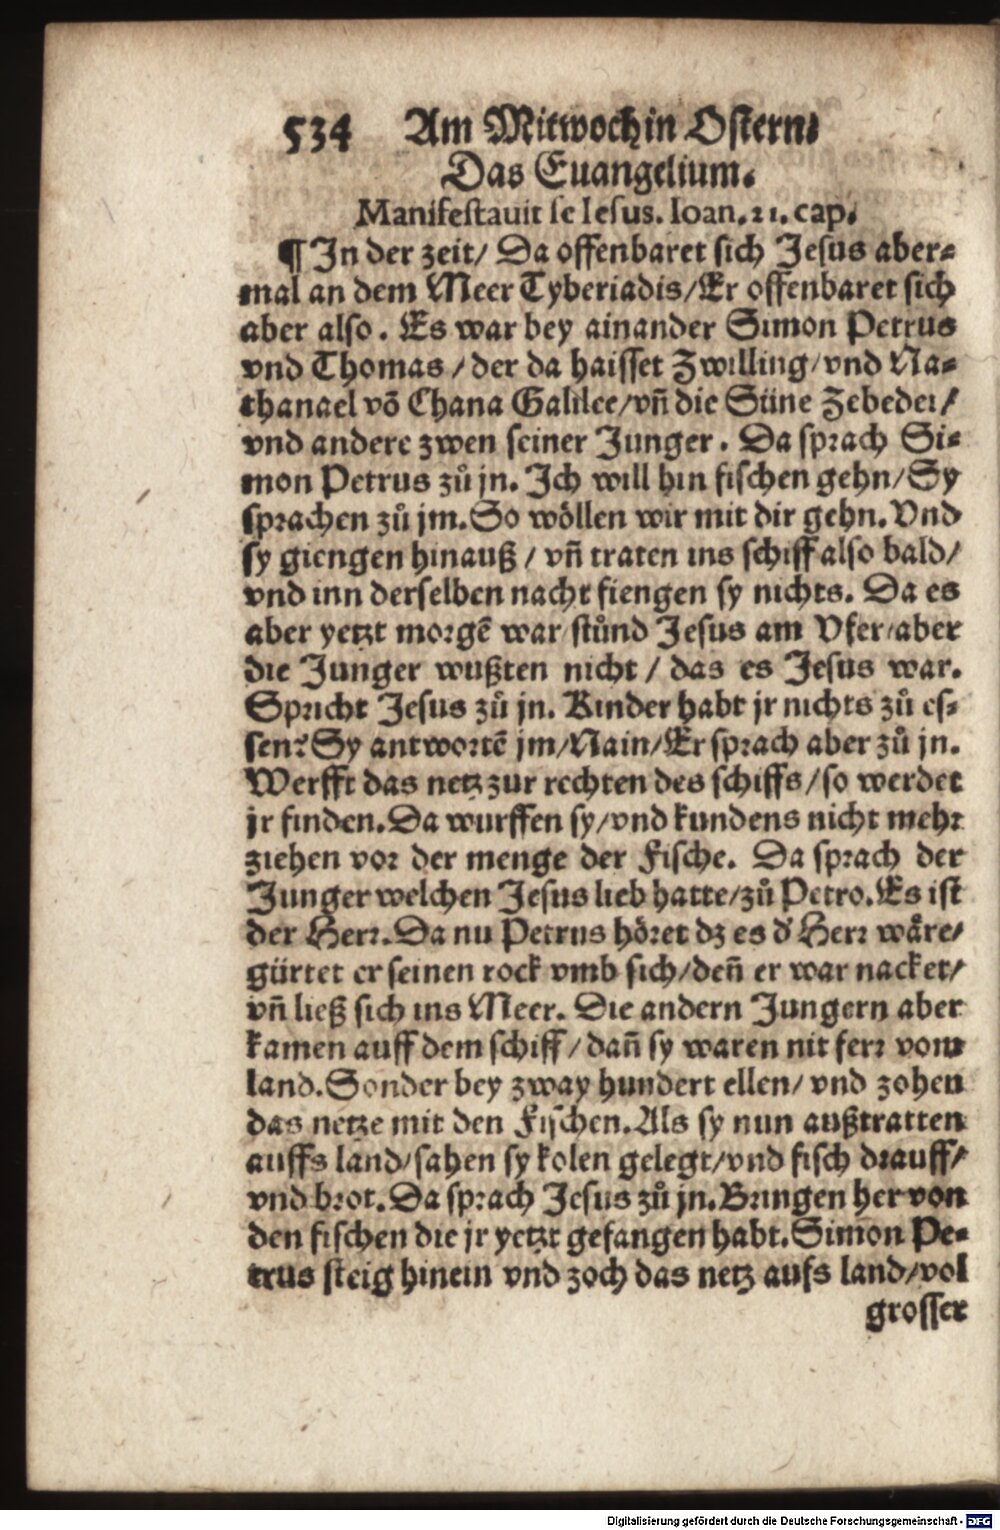 534 Am Mitwoch in Ostern/
Das Euangelium.
Manifestauit se Iesus. Ioan. 21. cap.
¶ In der zeit/ Da offenbaret sich Jesus aber-
mal an dem Meer Tyberiadis/ Er offenbaret sich
aber also. Es war bey ainander Simon Petrus
vnd Thomas/ der da haisset Zwilling/ vnd Na-
thanael võ Chana Galilee/ vñ die Süne Zebedei/
vnd andere zwen seiner Junger. Da sprach Si-
mon Petrus zů jn. Ich will hin fischen gehn/ Sy
sprachen zů jm. So wöllen wir mit dir gehn. Vnd
sy giengen hinauß/ vñ traten ins schiff also bald/
vnd inn derselben nacht fiengen sy nichts. Da es
aber yetzt morgẽ war stůnd Jesus am Vfer/ aber
die Junger wußten nicht/ das es Jesus war.
Spricht Jesus zů jn. Kinder habt jr nichts zů es-
sen? Sy antwortẽ jm/ Nain/ Er sprach aber zů jn.
Werfft das netz zur rechten des schiffs/ so werdet
jr finden. Da wurffen sy/ vnd kundens nicht mehr
ziehen vor der menge der Fische. Da sprach der
Junger welchen Jesus lieb hatte/ zů Petro. Es ist
der Herr. Da nu Petrus höret dz es d' Herr wåre/
gürtet er seinen rock vmb sich/ deñ er war nacket/
vñ ließ sich ins Meer. Die andern Jungern aber
kamen auff dem schiff/ dañ sy waren nit ferr vom
land. Sonder bey zway hundert ellen/ vnd zohen
das netze mit den Fischen. Als sy nun außtratten
auffs land/ sahen sy kolen gelegt/ vnd fisch drauff/
vnd brot. Da sprach Jesus zů jn. Bringen her von
den fischen die jr yetzt gefangen habt. Simon Pe-
trus steig hinein vnd zoch das netz aufs land/ vol
grosser
Digitalisierung gefördert durch die Deutsche Forschungsgemeinschaft - DFG